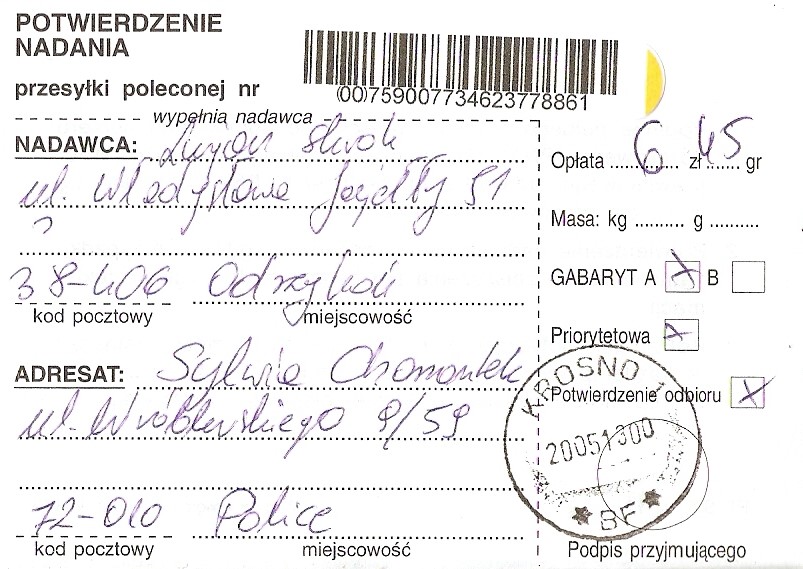 POTWIERDZENIE
NADANIA
przesyłki poleconej nr
(00)759007734623778861
wypełnia nadawca
NADAWCA: Lucjan
ul. Władysława Jagiełły 51
38-406 Odrzykoń
kod pocztowy miejscowość
ADRESAT: Sylwia Chomontek
ul. Wróblewskiego 9/59
72-010 Police
kod pocztowy miejscowość
Opłata 6 zł 45 gr
Masa: kg .......... g ..........
GABARYT A X B
Priorytetowa X
Potwierdzenie odbioru X
KROSNO 1
20051300
BF
Podpis przyjmującego